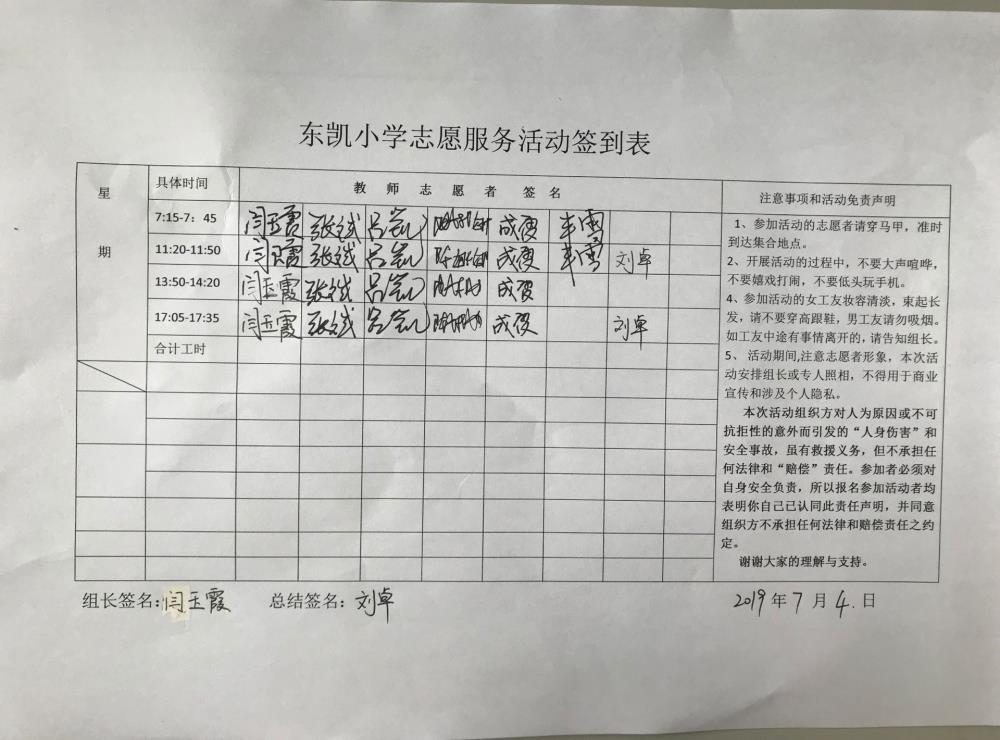 东凯小学志愿服务活动签到表
星期
具体时间 教师志愿者签名
7:15-7：45 闫玉霞 吕凯 成霞
11:20-11:50 闫霞 吕凯 成霞 刘卓
13:50-14:20 闫玉霞 吕凯 成霞
17:05-17:35 闫玉霞 吕凯 成霞 刘卓
合计工时
注意事项和活动免责声明
1、参加活动的志愿者请穿马甲，准时
到达集合地点。
2、开展活动的过程中，不要大声喧哗，
不要嬉戏打闹，不要低头玩手机。
4、参加活动的女工友妆容清淡，束起长
发，请不要穿高跟鞋，男工友请勿吸烟。
如工友中途有事情离开的，请告知组长。
5、 活动期间,注意志愿者形象，本次活
动安排组长或专人照相，不得用于商业
宣传和涉及个人隐私。
本次活动组织方对人为原因或不可
抗拒性的意外而引发的“人身伤害”和
安全事故，虽有救援义务，但不承担任
何法律和“赔偿”责任。参加者必须对
自身安全负责，所以报名参加活动者均
表明你自己已认同此责任声明，并同意
组织方不承担任何法律和赔偿责任之约
定。
谢谢大家的理解与支持。
组长签名：闫玉霞 总结签名：刘卓 2019年7月4.日